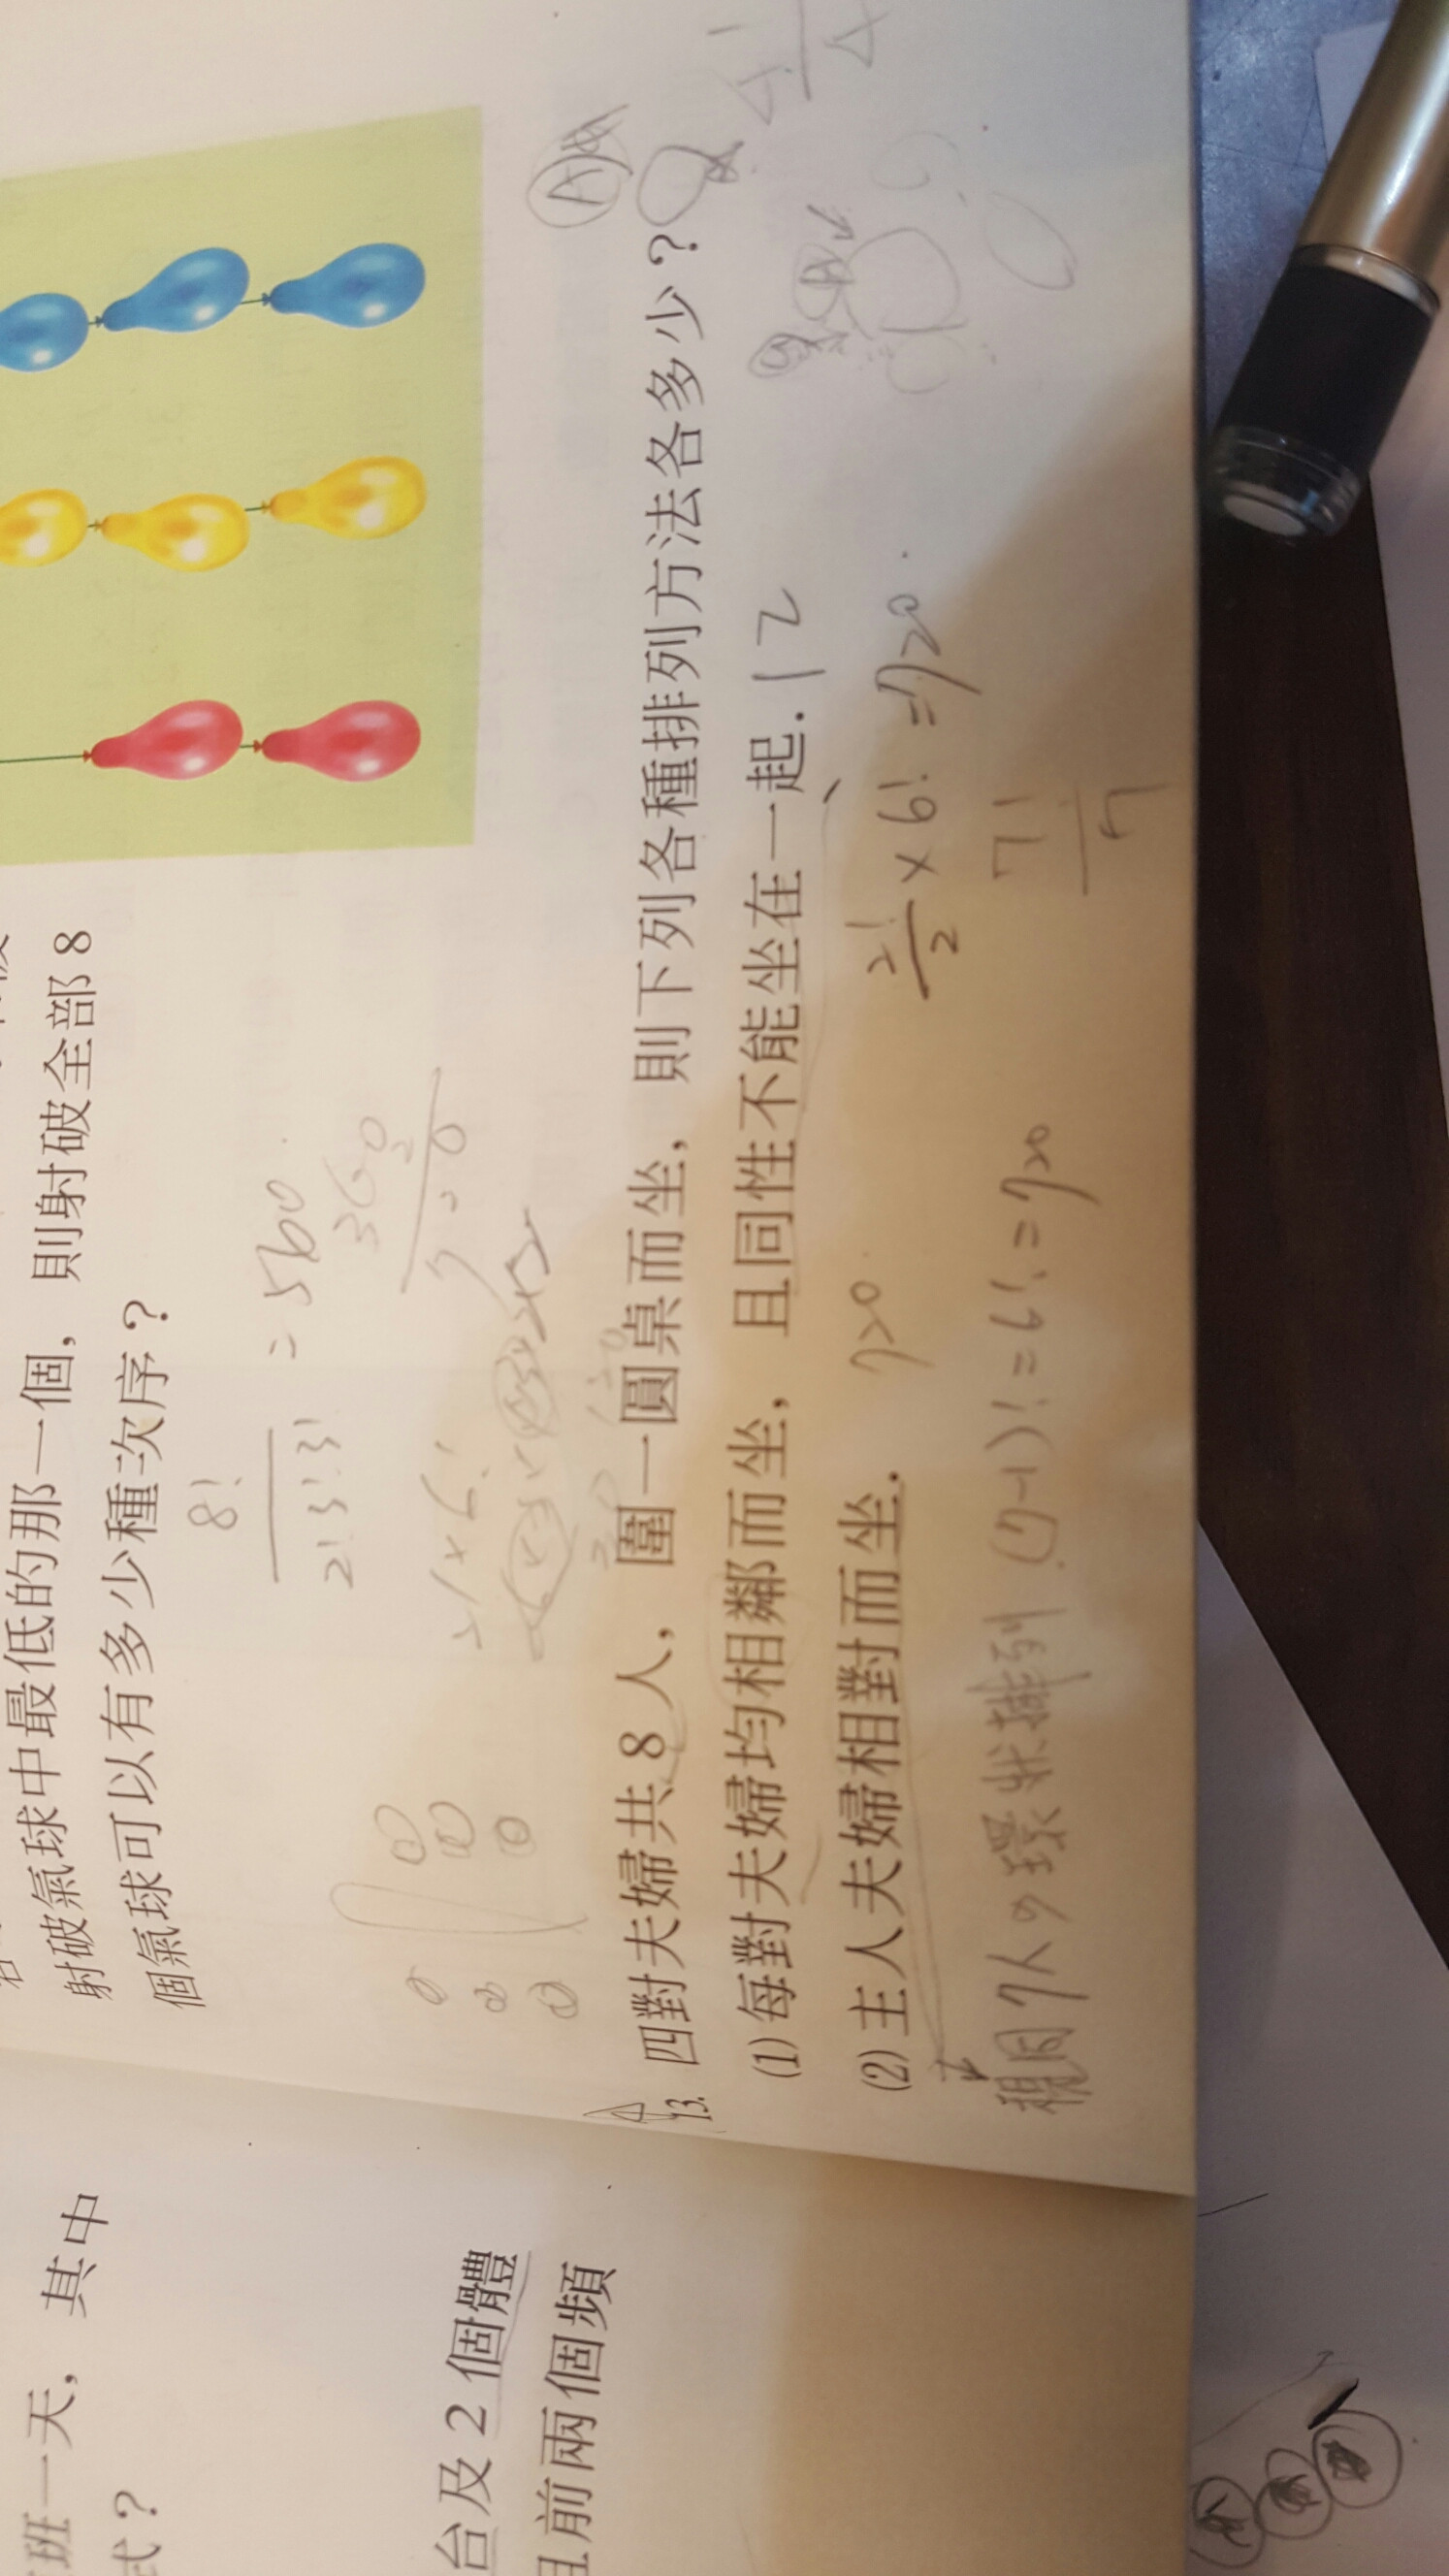 射破氣球中最低的那一個，則射破全部 8
個氣球可以有多少種次序？
8!
2!3!3!
= 560
360
720
13. 四對夫婦共 8 人，圍一圓桌而坐，則下列各種排列方法各多少？
(1) 每對夫婦均相鄰而坐，且同性不能坐在一起. 12
(2) 主人夫婦相對而坐. 720
2!/2 × 6! = 720
7!
7
視同7人の環狀排列 (7-1)! = 6! = 720
班一天，其中
式？
台及 2 個體
且前兩個頻